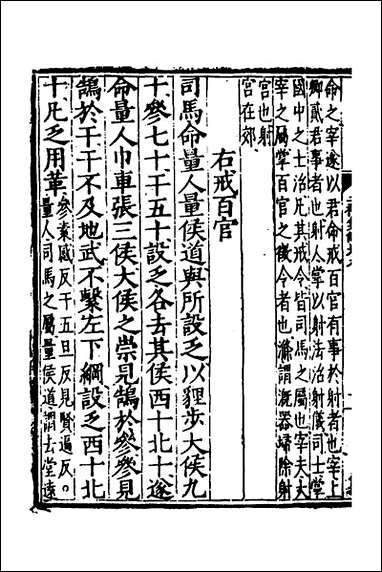 命之宰遂以君命戒百官有事於射者也宰上
卿戴君事者也射人掌以射法治射儀司士掌
國中之士治凡其戒令皆司馬之屬也宰夫大
宰之屬掌百官之徵令者也滌謂溉器埽除射
宮也射
宮在郊
右戒百官
司馬命量人量侯道與所設乏以貍步大侯九
十參七十干五十設乏各去其侯西十北十遂
命量人巾車張三侯大侯之崇見鵠於參參見
鵠於干干不及地武不繫左下綱設乏西十北
十凡乏用革參素感反干五旦反見賢遍反。
量人司馬之屬量侯道謂去堂遠